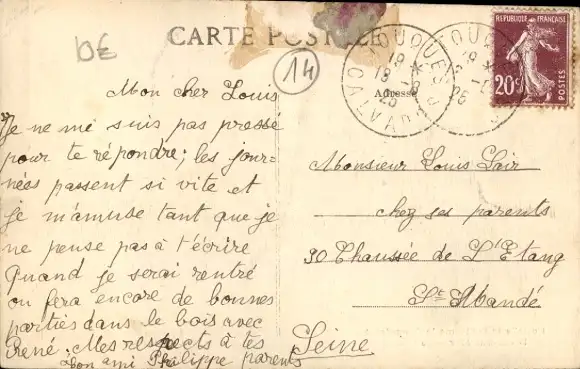 DE
CARTE POSTALE
14
Adresse
TOUQUES
18 *
18 - 8
26
CALVADOS
REPUBLIQUE FRANÇAISE
20c
POSTES
Mon cher Louis
Je ne me suis pas pressé
pour te répondre; les jour=
nées passent si vite et
je m'amuse tant que je
ne pense pas à t'écrire
Quand je serai rentré
on fera encore de bonnes
parties dans le bois avec
René. Mes respects à tes
parents
Ton ami Philippe
Monsieur Louis Lair
chez ses parents
30 Chaussée de L'Etang
St Mandé
Seine